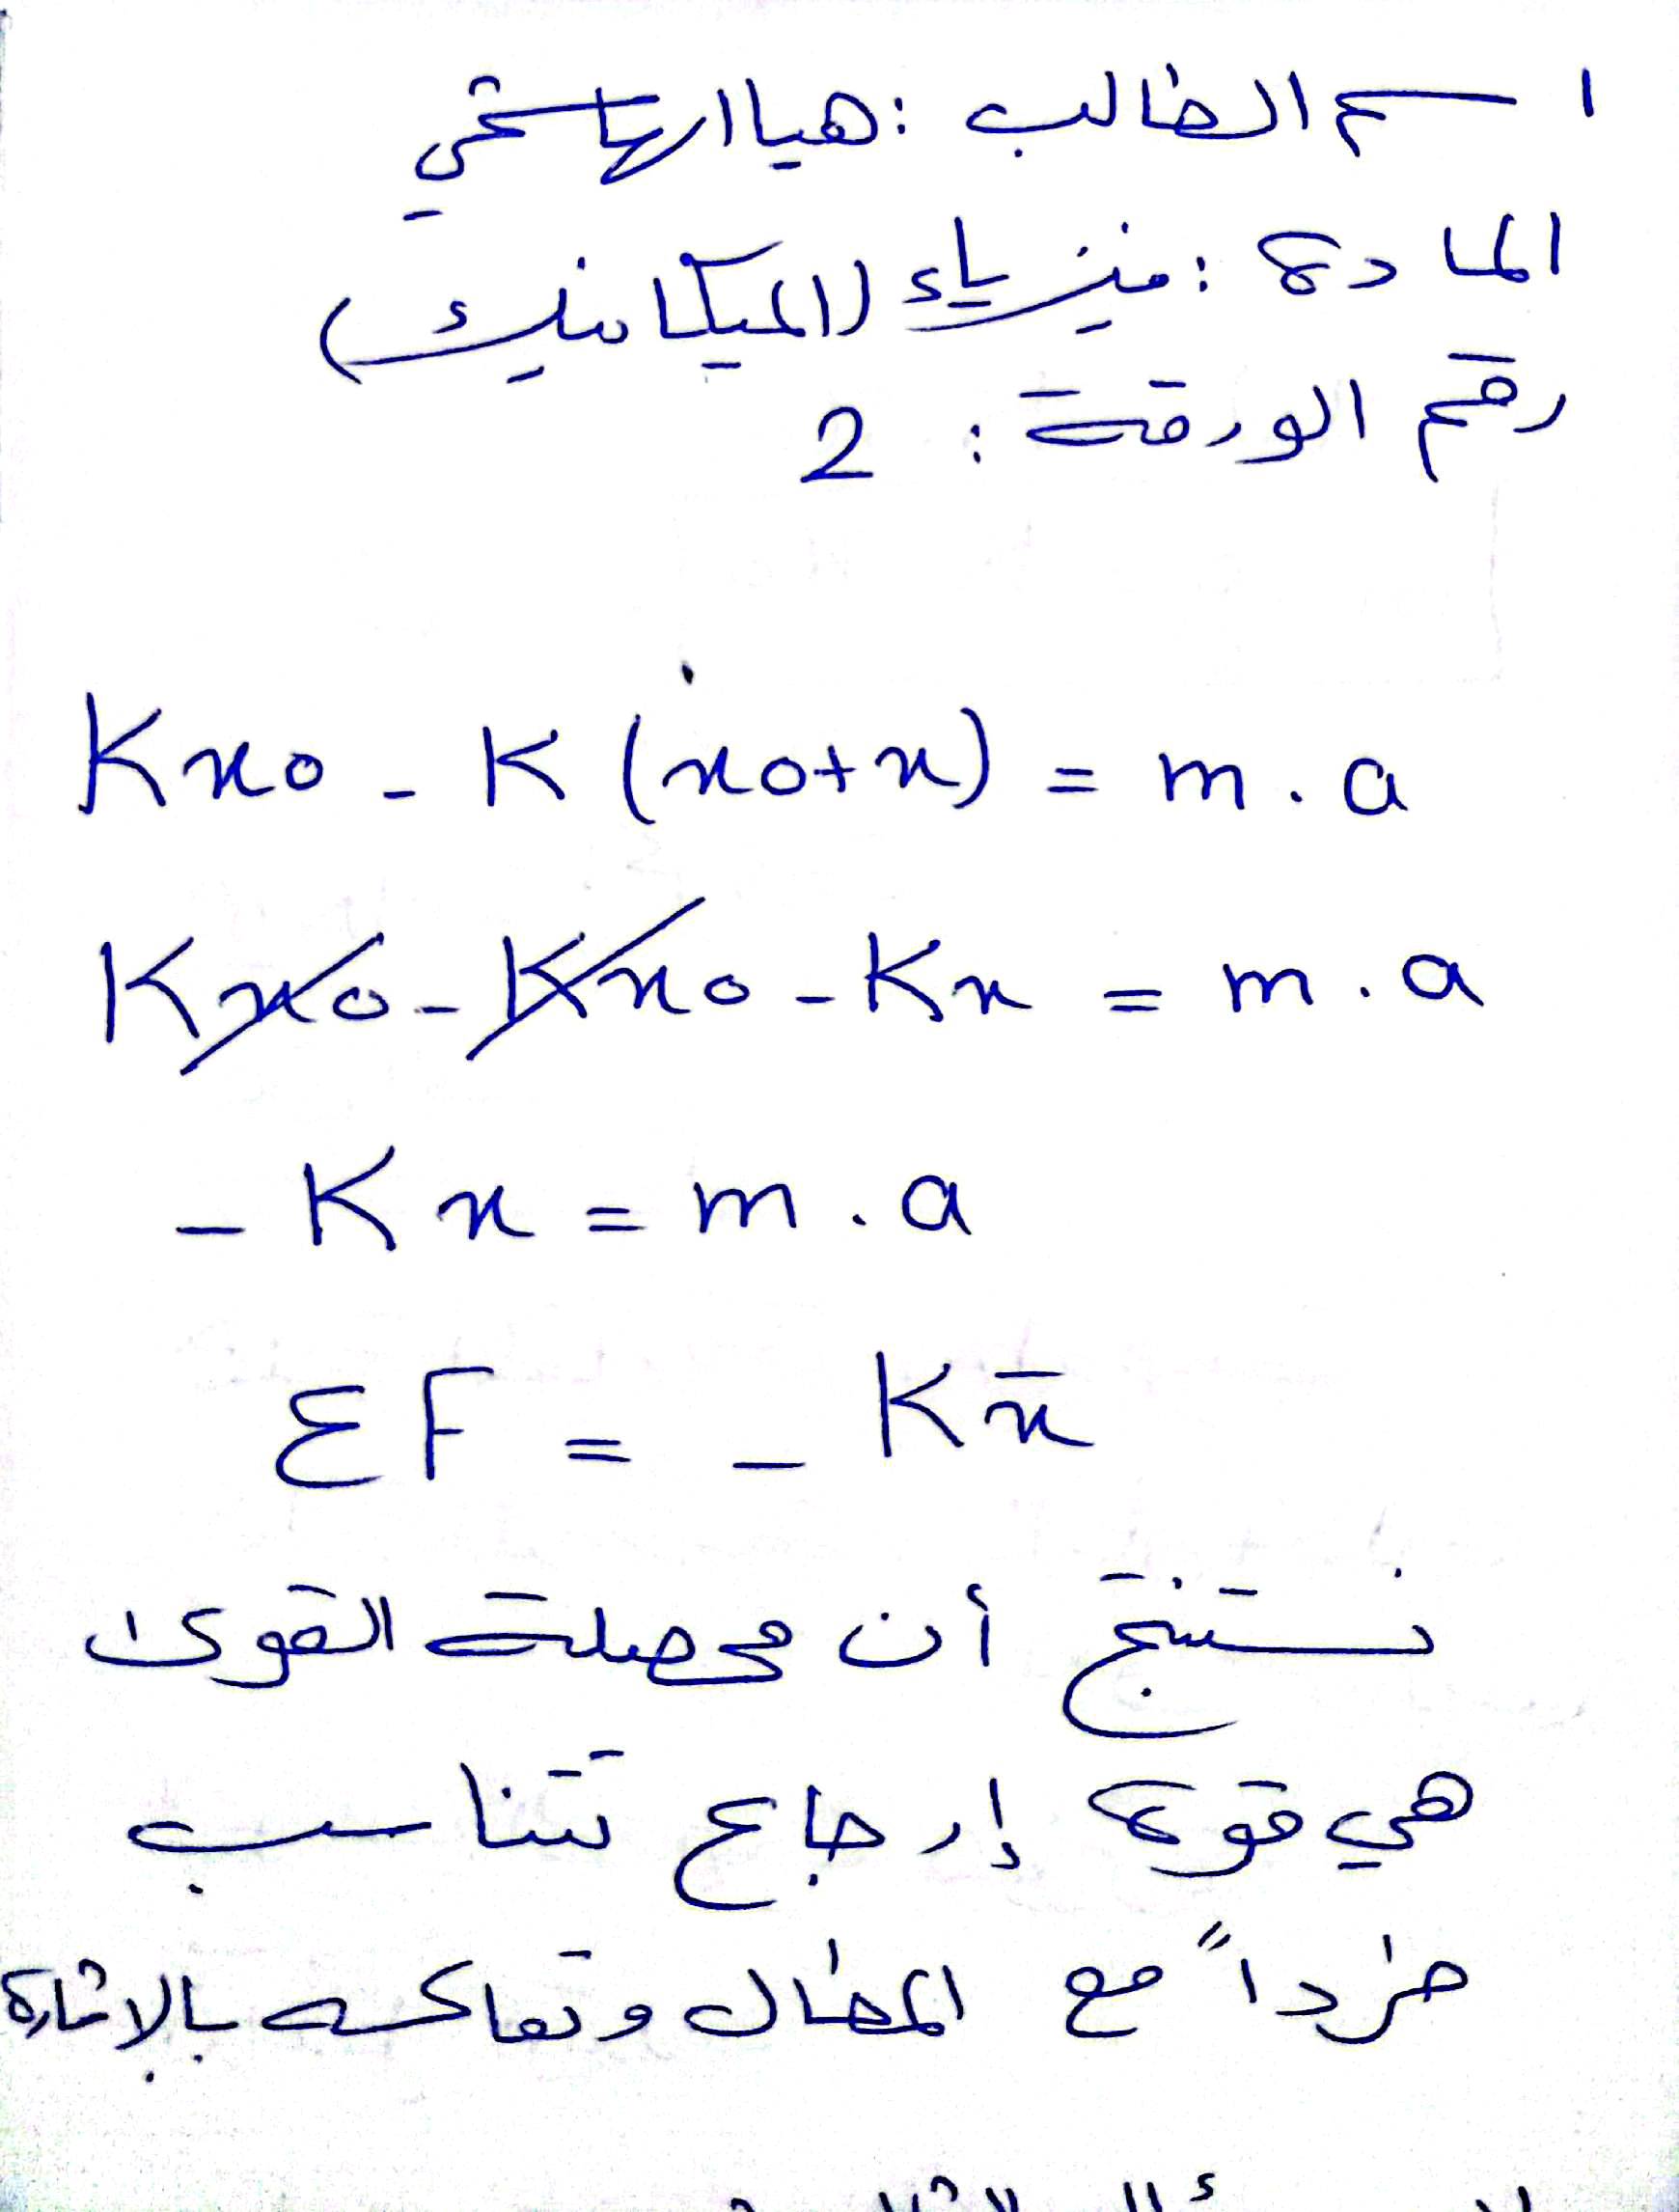 اسم الطالب : هيا الهاشمي
المادة : فيزياء (الميكانيك)
رقم الورقة : 2
Kx0 - K (x0+x) = m . a
Kx0 - Kx0 - Kx = m . a
- Kx = m . a
ΣF = - Kx̄
نستنتج أن محصلة القوى
هي قوة إرجاع تتناسب
طرداً مع المطال وتعاكسه بالإشارة